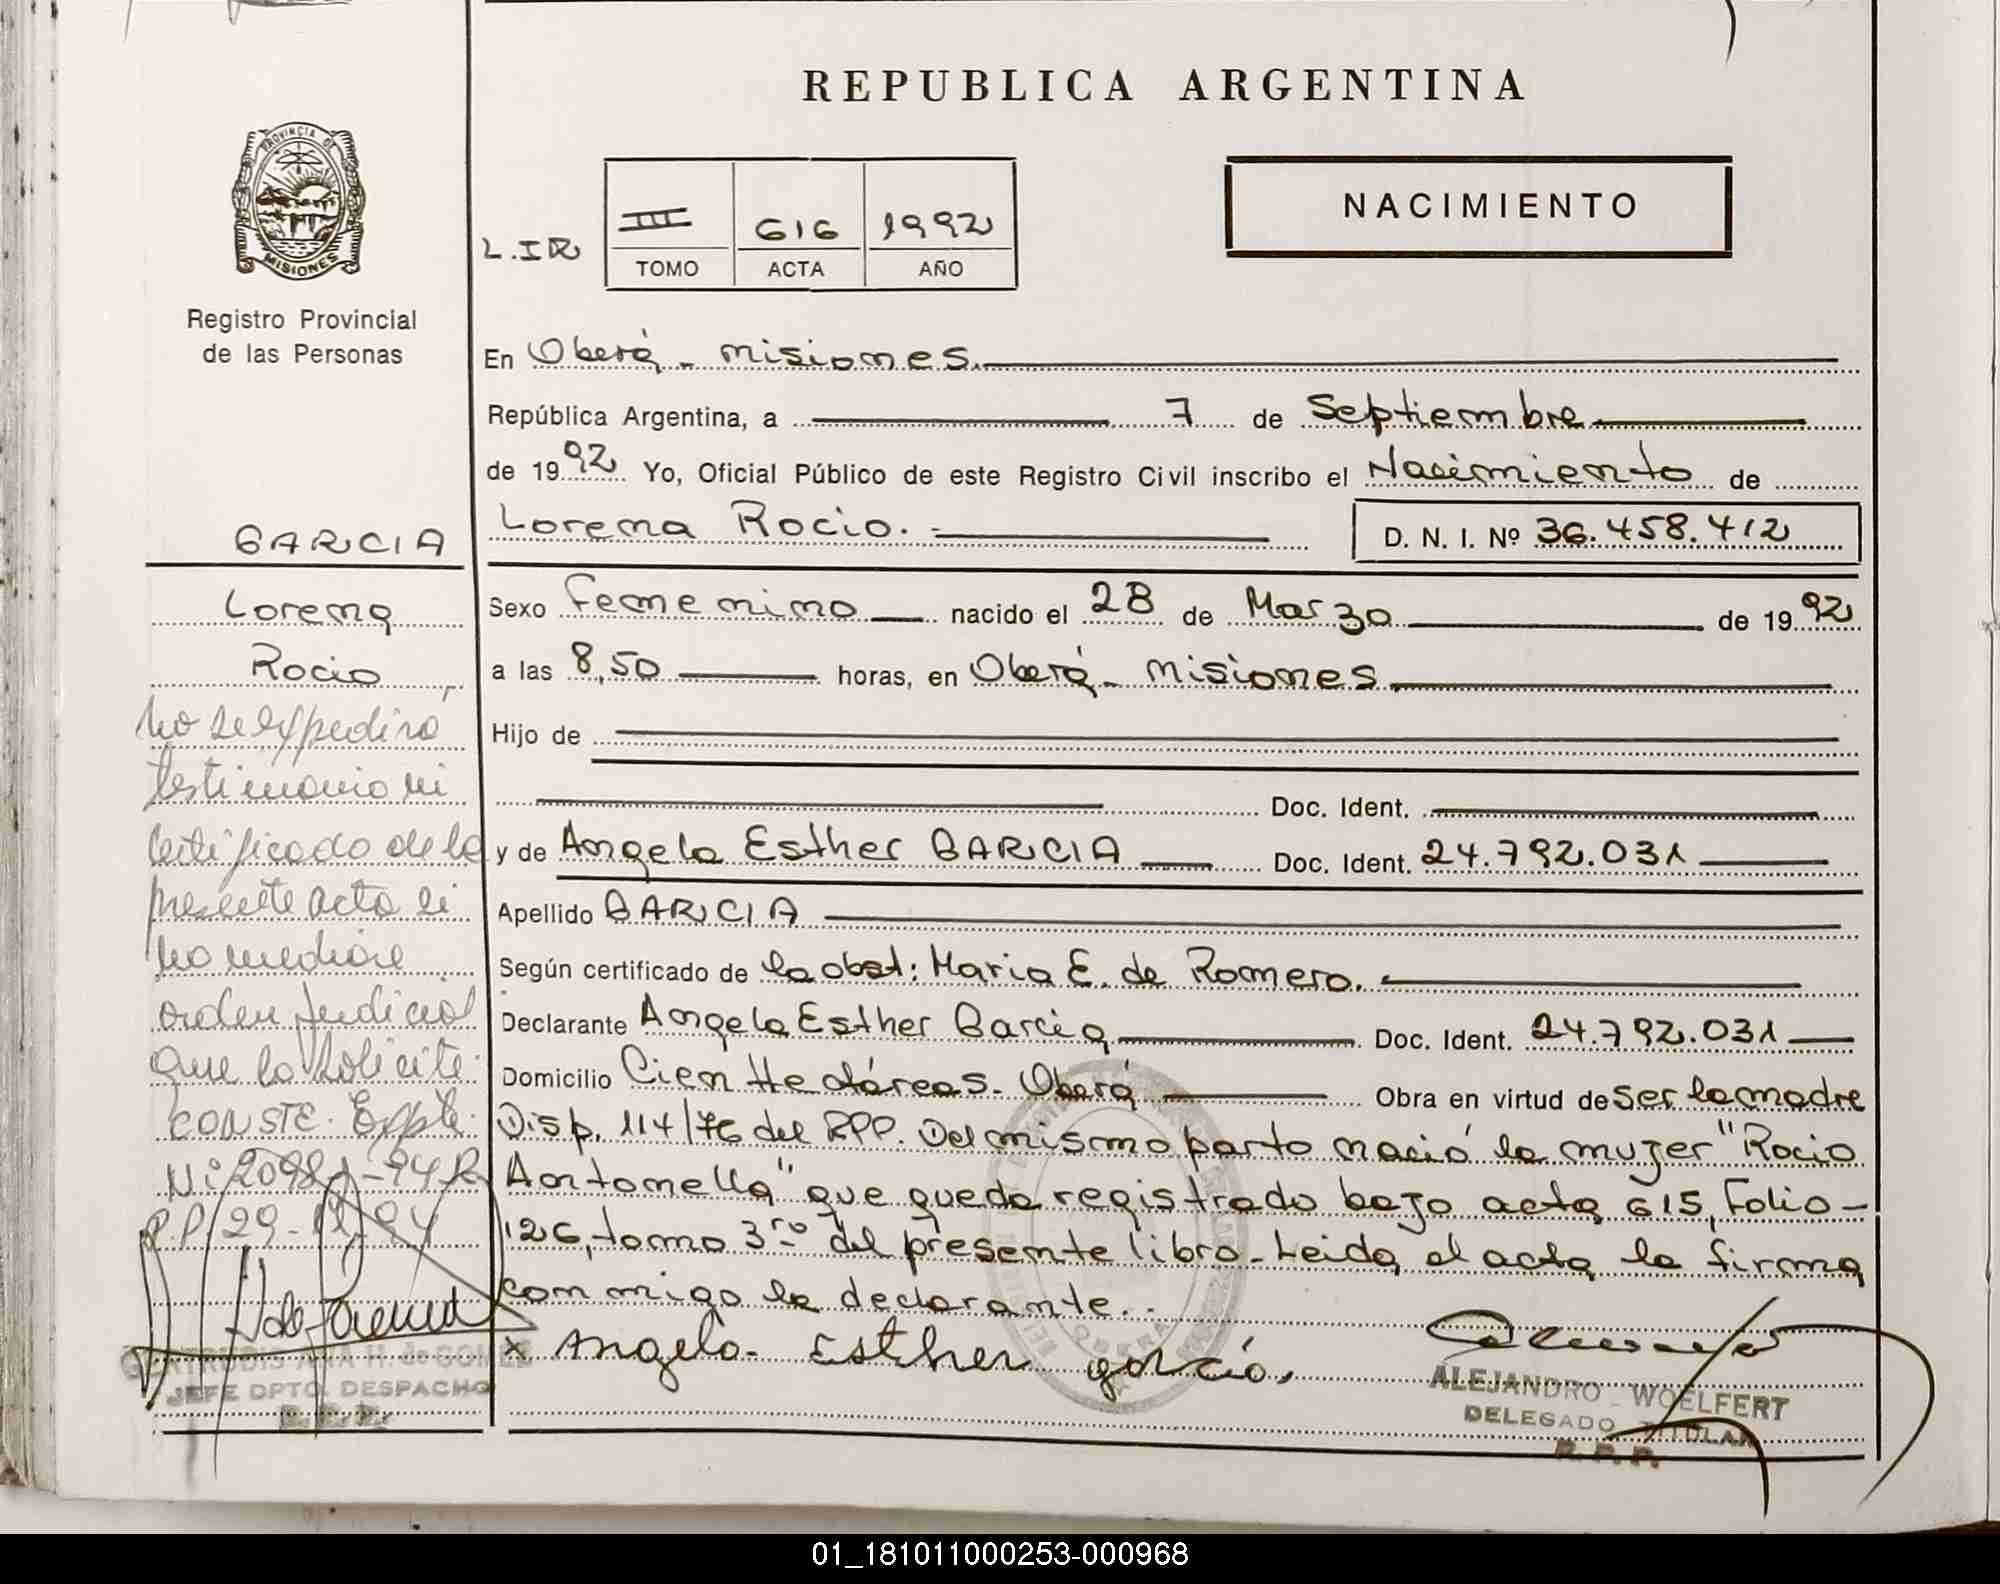 REPUBLICA ARGENTINA
PROVINCIA DE
MISIONES
Registro Provincial
de las Personas
NACIMIENTO
L.IR
III 616 1992
TOMO ACTA AÑO
En Oberá - misiones.
República Argentina, a 7 de Septiembre
de 1992 Yo, Oficial Público de este Registro Civil inscribo el Nacimiento de
Lorena Rocio. -
D. N. I. Nº 36.458.412
Sexo Femenino nacido el 28 de Marzo de 1992
a las 8,50 horas, en Oberá - misiones.
Hijo de
Doc. Ident.
y de Angela Esther GARCIA Doc. Ident. 24.792.031
Apellido GARCIA
Según certificado de la obst: Maria E. de Romero.
Declarante Angela Esther Garcia Doc. Ident. 24.792.031
Domicilio Cien Hectáreas - Oberá Obra en virtud de ser la madre
Disp. 114/76 del RPP. Del mismo parto nació la mujer "Rocio
Antonella" que queda registrado bajo acta 615, Folio-
126, tomo 3ro del presente libro - Leida el acta la firma
conmigo la declarante..
x Angela Esther garcia.
ALEJANDRO WOELFERT
DELEGADO TITULAR
R. P. P.
GARCIA
Lorena
Rocio
No se expedirá
testimonio ni
certificado de la
presente acta si
no mediare
orden judicial
que lo solicite.
CONSTE. Expte.
Nº 2098 -94 R
R.P.P. 29-12-94
JEFE DPTO. DESPACHO
R. P. P.
01_181011000253-000968